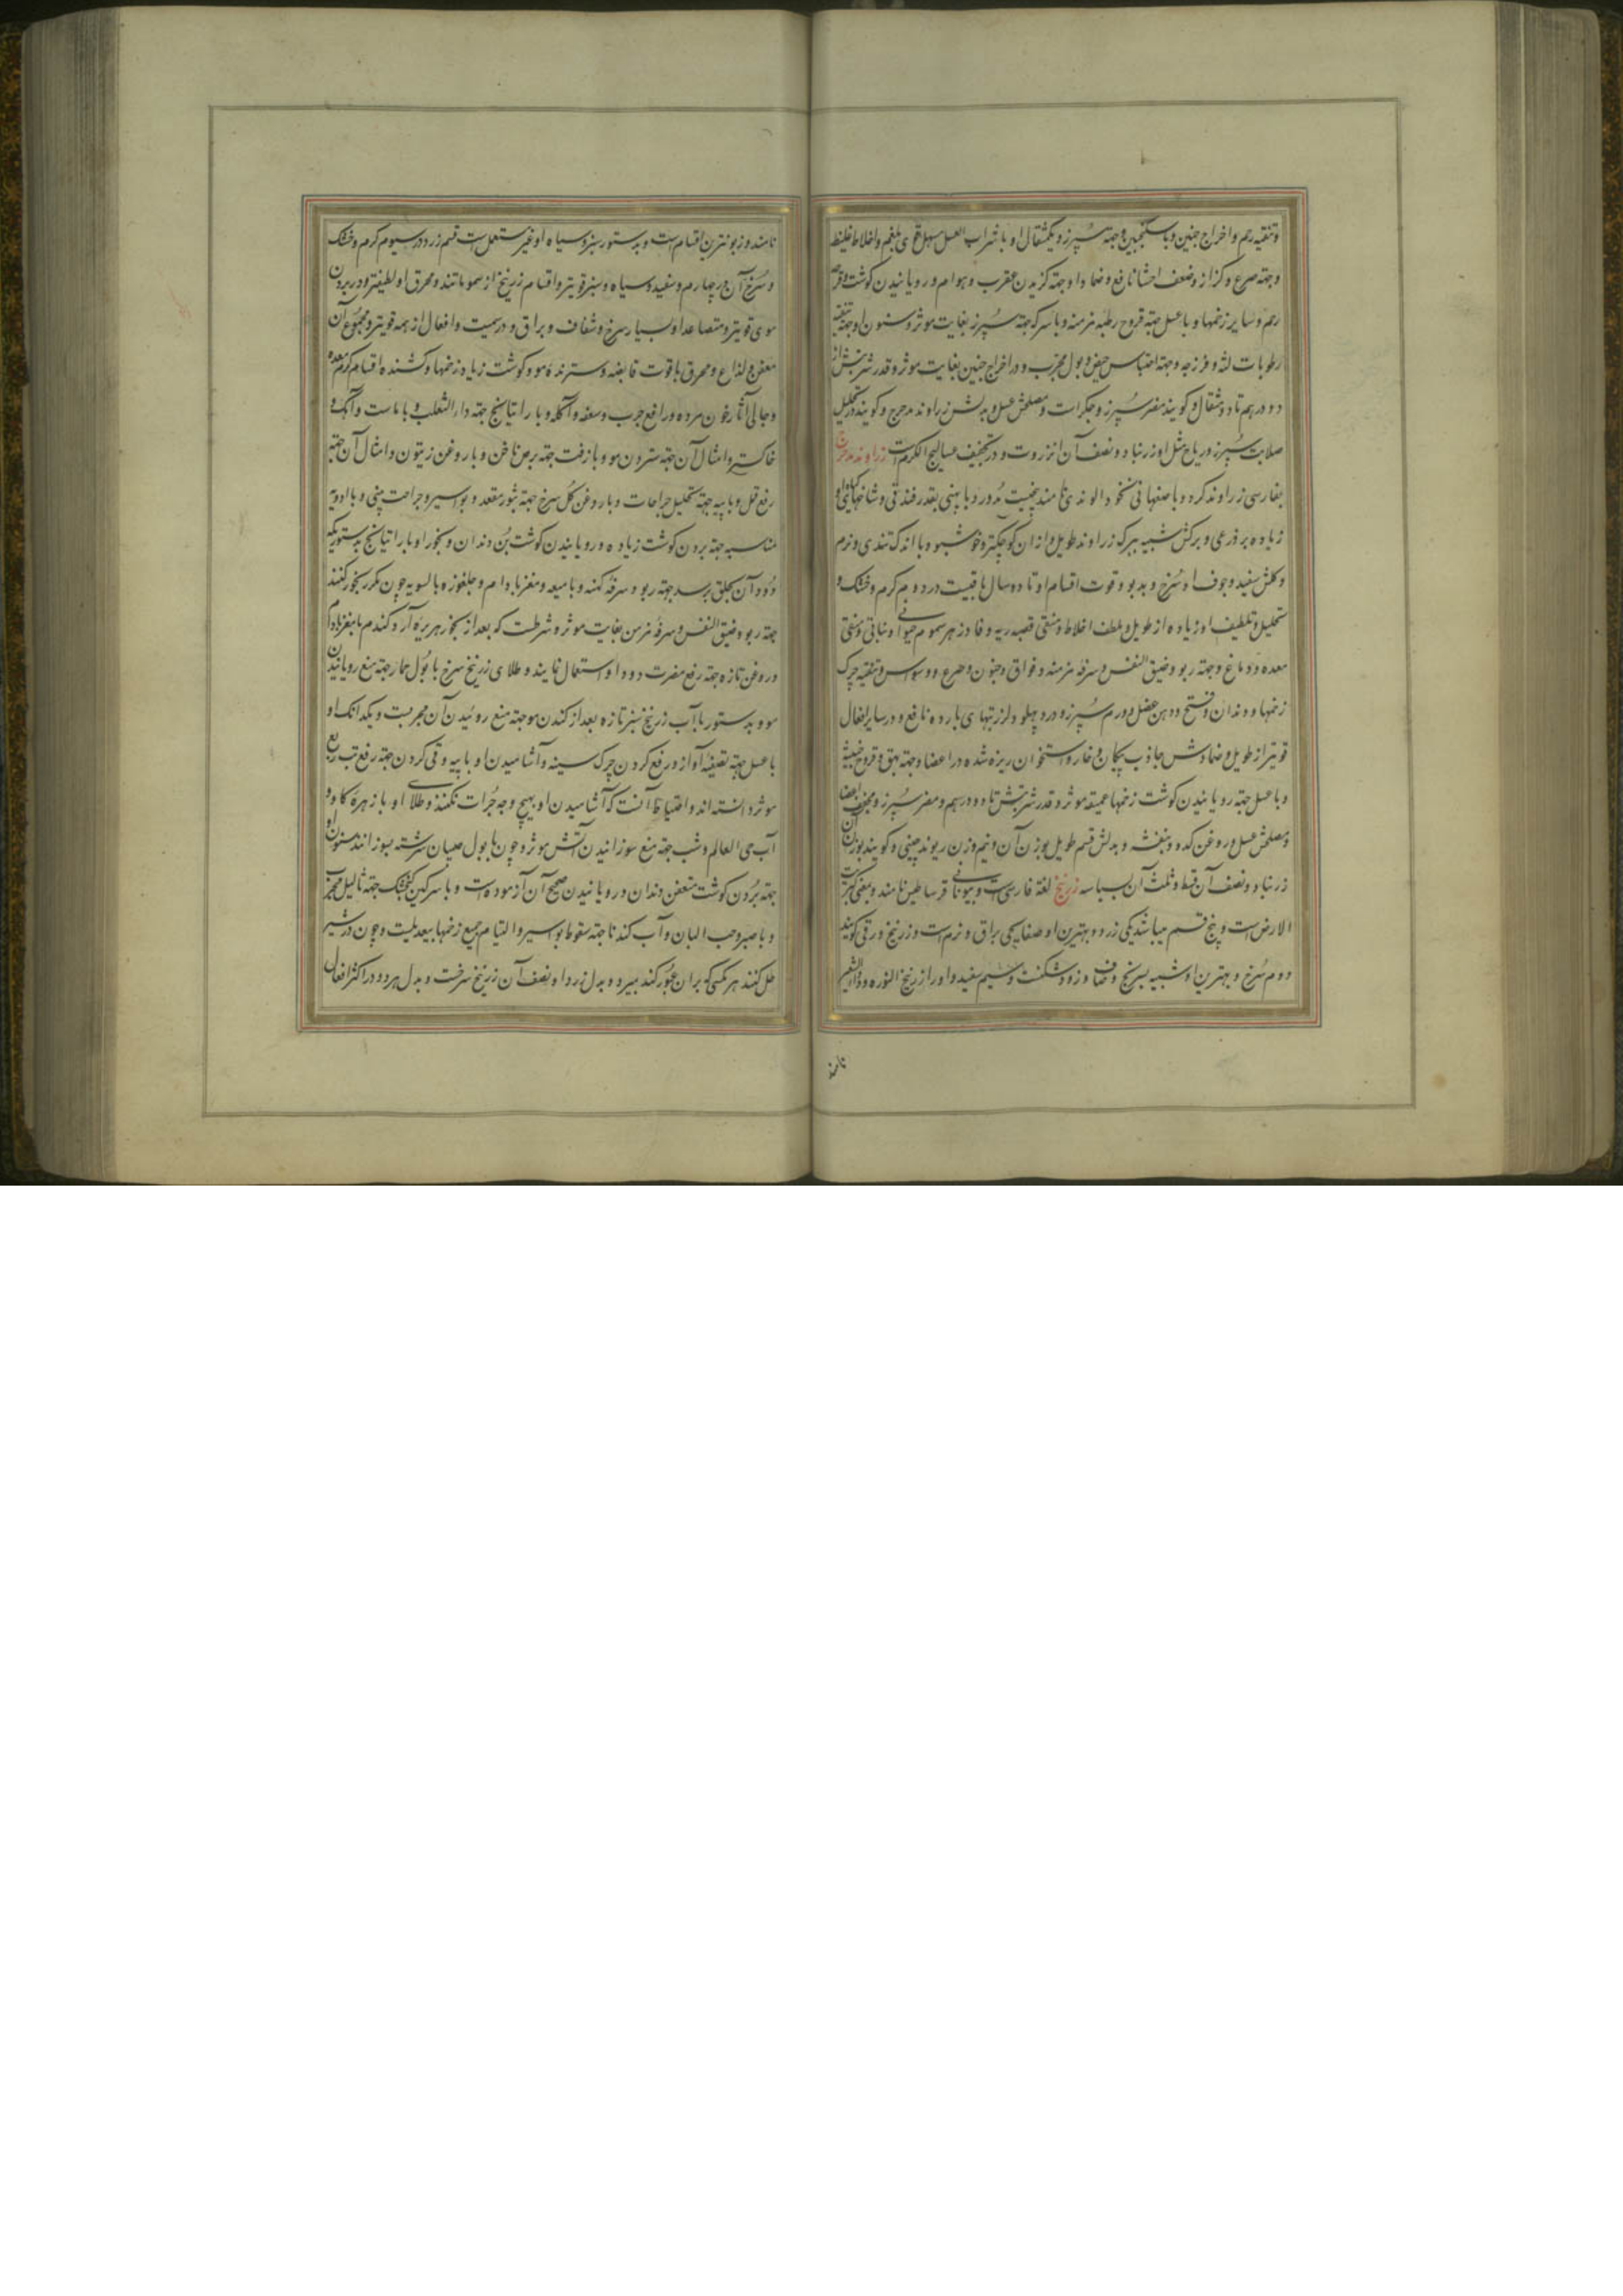 وتنقیه رحم و اخراج جنین و باسکنجبین و جهة سپرز و یکمثقال او با شراب العسل مسهل قوی بلغم و اخلاط غلیظ
وجهة صرع و کزاز و ضعف احشا نافع و ضماد او جهة کزیدن عقرب و هوام و رویانیدن کوشت قروح
رحم و سایر زخمها و باعسل جهة قروح رطبه مزمنه و باسرکه جهة سپرز بغایت موثر و سنون او جهة تنقیه
رطوبات لثه و فرزجه وجهة احتباس حیض و بول مجرب و در اخراج جنین بغایت موثر و قدر شربتش از
دو درهم تا دو مثقال و کویند مضر سپرز و جکرات و مصلحش عسل و بدلش زراوند مدحرج و کویند در تحلیل
صلابت سپرز و ریاح مثل او زرنباد و نصف آن انزروت و در تجفیف عسالیج الکرم است زراوند مدحرج
بفارسی زراوند کرد و باصفهانی نخود الوندی نامند بیخیست مدور و با پهنی بقدر فندقی و شاخهای او
زیاده بر ذرعی و برکش شبیه ببرک زراوند طویل و از ان کوچکتر و خوشبو و با اندک تندی و نرم
و کلش سفید و جوف او سرخ و بدبو و قوت اقسام او تا دو سال باقیست در دویم کرم و خشک و
تحلیل و تلطیف او زیاده از طویل و ملطف اخلاط و منقی قصبه ریه و فادزهر سموم حیوانی و نباتی و منقی
معده و دماغ و جهة ربو و ضیق النفس و سرفه مزمنه و فواق و جنون و صرع و وسواس و تنقیه چرک
زخمها و دندان و فسخ و وهن عضل و ورم سپرز و درد پهلو و لرز تبهای بارده نافع و در سایر افعال
قویتر از طویل و ضمادش جاذب پیکان و خار و استخوان ریزه شده در اعضا و جهة بهق و قروح خبیثه
و باعسل جهة رویانیدن کوشت زخمها عمیقه موثر و قدر شربتش تا دو درهم و مضر سپرز و مجفف اعضا
و مصلحش عسل و روغن کدو و بنفشه و بدلش قسم طویل بوزن آن و نیم وزن ریوند چینی و کویند بوزن آن
زرنباد و نصف آن قسط و ثلث آن بسباسه زرنیخ لغة فارسی است و بیونانی قرساطیس نامند و بمعنی کبریت
الارض است و پنج قسم میباشد یکی زرد و بهترین او صفایحی براق و نرم است و زرنیخ ورقی کویند
دوم سرخ و بهترین او شبیه بسرنج و صاف و زود شکنست و سیم سفید و اورا زرنیخ النوره و دواء الشعر
نامند
نامند و زبونترین اقسام است و بدستور سبز و سیاه او غیر مستعمل است قسم زرد در سیوم کرم و خشک
و سرخ آن در چهارم و سفید و سیاه و سبز قویتر و اقسام زرنیخ از سمومانند و محرق او لطیفتر و در بردن
موی قویتر و متصاعد او بسیار سرخ و شفاف و براق و در سمیت و افعال از همه قویتر و مجموع آن
معفن و لذاع و محرق با قوت قابضه و سترنده مو و کوشت زیاده زخمها و کشنده اقسام کرم معده
و جالی آثار خون مرده و رافع جرب و سعفه و آکله و با راتیانج جهة داء الثعلب و با ماست و آهک و
خاکستر و امثال آن جهة ستردن مو و با زفت جهة برص ناخن و با روغن زیتون و امثال آن جهة
رفع قمل و با پیه جهة تحلیل جراحات و با روغن کل سرخ جهة بثور مقعد و بواسیر و جراحت بینی و با ادویه
مناسبه جهة بردن کوشت زیاده و رویانیدن کوشت بن دندان و بخور او با راتیانج بدستوریکه
دود آن بحلق برسد جهة ربو و سرفه کهنه و با میعه و مغز بادام و جلغوزه بالسویه چون مکرر بخور کنند
جهة ربو و ضیق النفس و سرفه مزمن بغایت موثر و شرطست که بعد از بخور هریره آرد کندم با مغز بادام
و روغن تازه جهة رفع مضرت دود او استعمال نمایند و طلای زرنیخ سرخ با بول حمار جهة منع رویانیدن
مو و بدستور با آب زرنیخ سبز تازه بعد از کندن مو جهة منع روئیدن آن مجربست و یکدانک او
با عسل جهة تصفیه آواز و رفع کردن چرک سینه و آشامیدن او با پیه و قی کردن جهة رفع تب ربع
موثر دانسته اند و احتیاط آنست که آشامیدن او بهیچ وجه جرات نکنند و طلای او با زهره کاو و
آب حی العالم و شب جهة منع سوزانیدن آتش موثر و چون با بول صبیان سرشته بسوزانند سنون او
جهة بردن کوشت متعفن دندان و رویانیدن صحیح آن آزموده است و با سرکین کنجشک جهة ثالیل مجرب
و با صبر و حب البان و آب کندنا جهة سقوط بواسیر و التیام جمیع زخمها بیعدیلست و چون در شیر
حل کنند هر مکسی که بران عبور کند بمیرد و بدل زرد او نصف آن زرنیخ سرخست و بدل هر دو در اکثر افعال